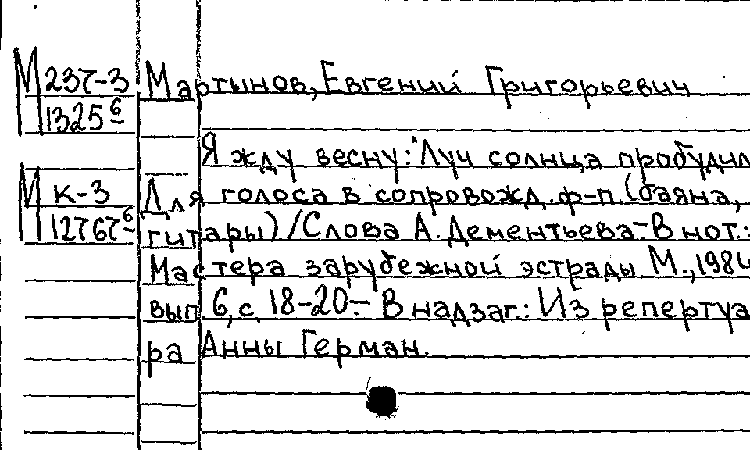 М 237-3 Мартынов, Евгений Григорьевич
1325 б
Я жду весну: "Луч солнца пробудил
М К-3 Для голоса в сопровожд. ф-п. (баяна,
12767 б гитары) / Слова А. Дементьева - В нот.:
Мастера зарубежной эстрады. М., 1984
вып 6, с. 18-20.- В надзаг.: Из репертуа
ра Анны Герман.